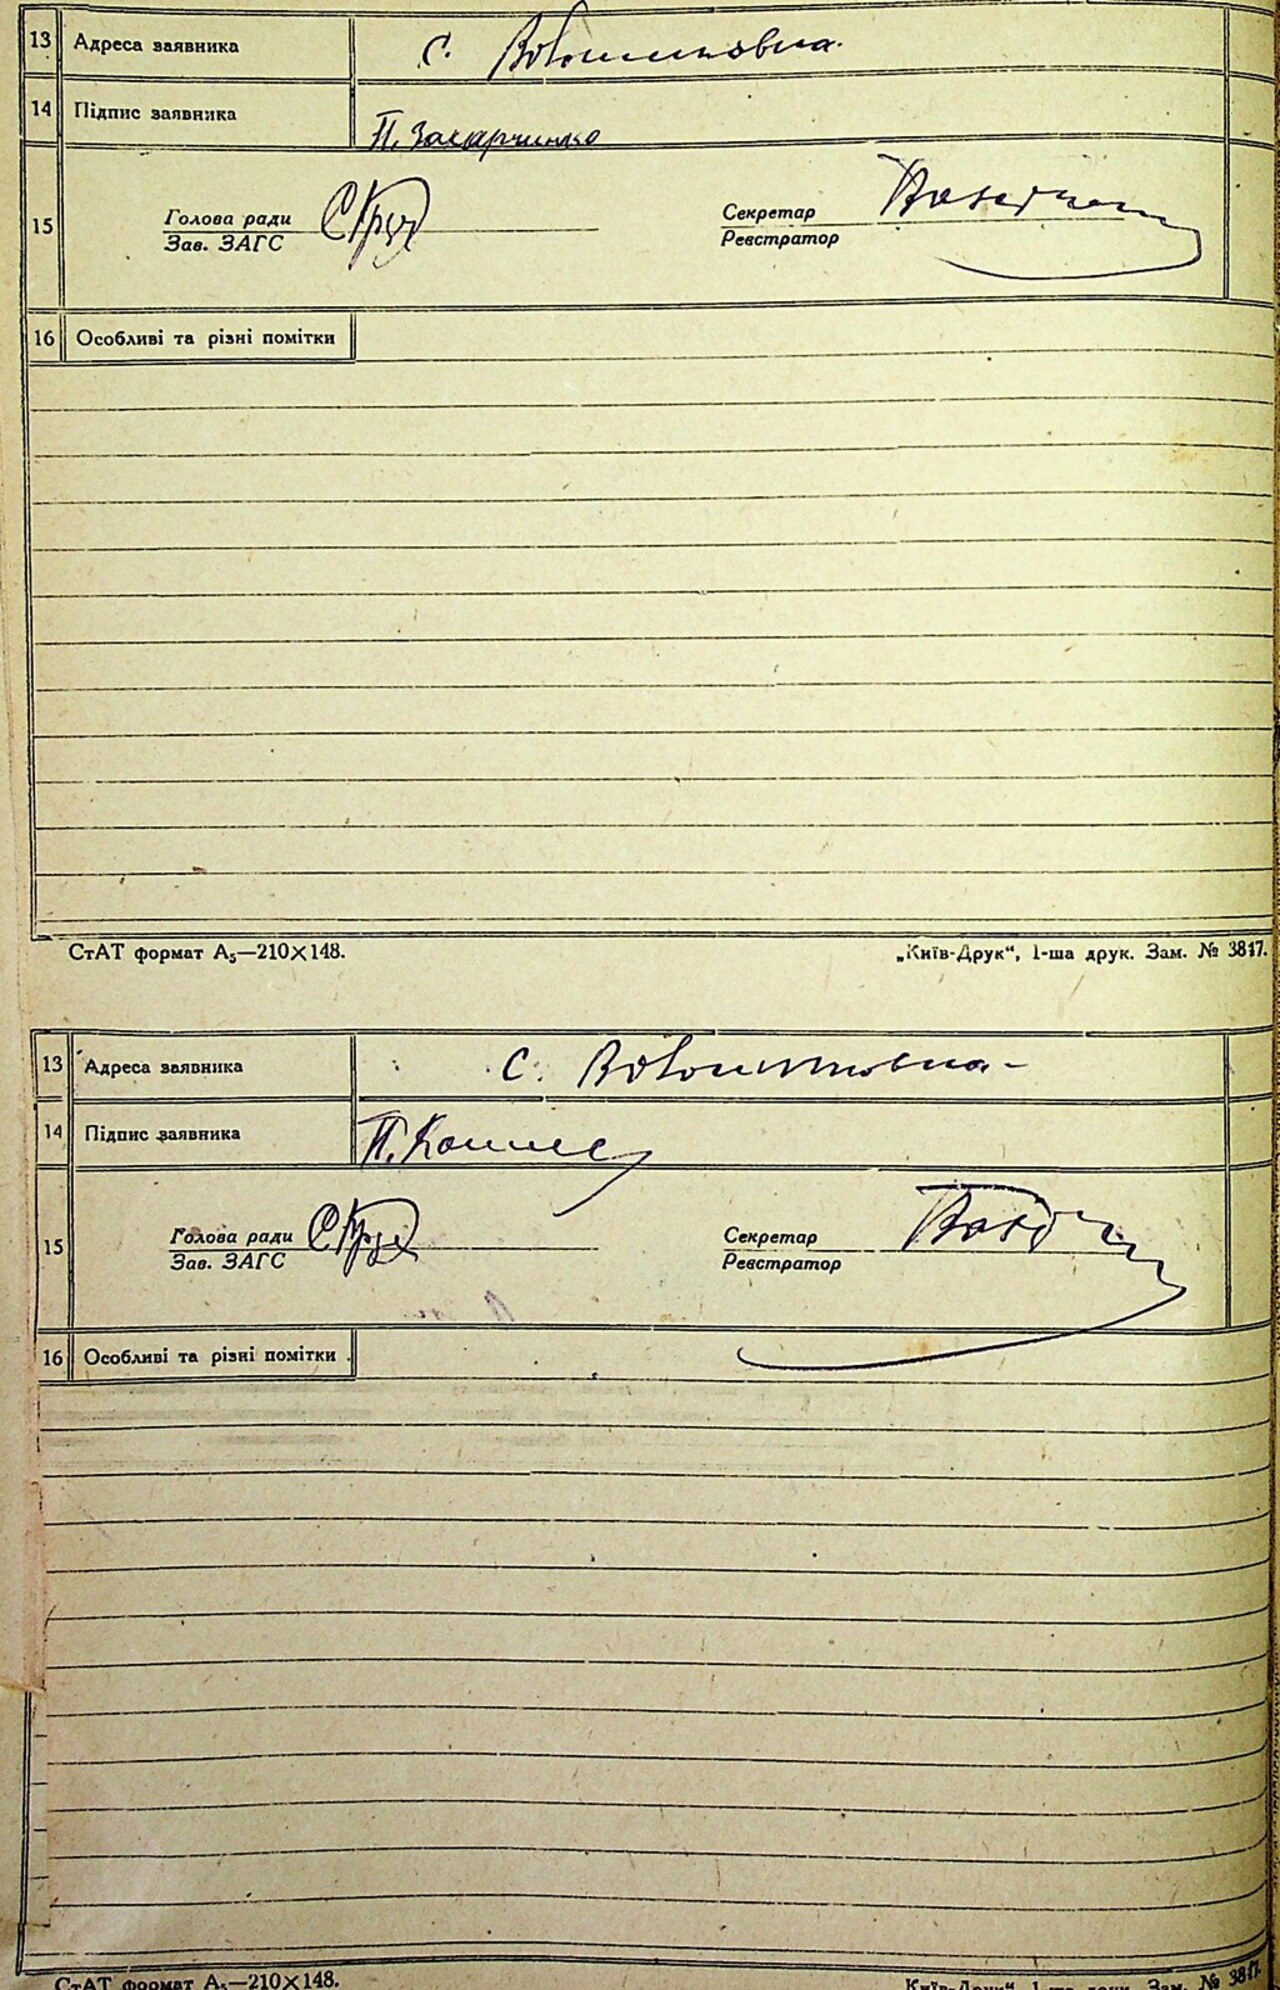 13 Адреса заявника с. Волошиновка.
14 Підпис заявника П. Захарченко
15 Голова ради Секретар
Зав. ЗАГС Реєстратор
16 Особливі та різні помітки
СтАТ формат А₅—210×148. „Київ-Друк“, 1-ша друк. Зам. № 3817.
13 Адреса заявника с. Волошиновка
14 Підпис заявника П.
15 Голова ради Секретар
Зав. ЗАГС Реєстратор
16 Особливі та різні помітки
СтАТ формат А₅—210×148. Київ-Друк“, 1-ша друк. Зам. № 3817.